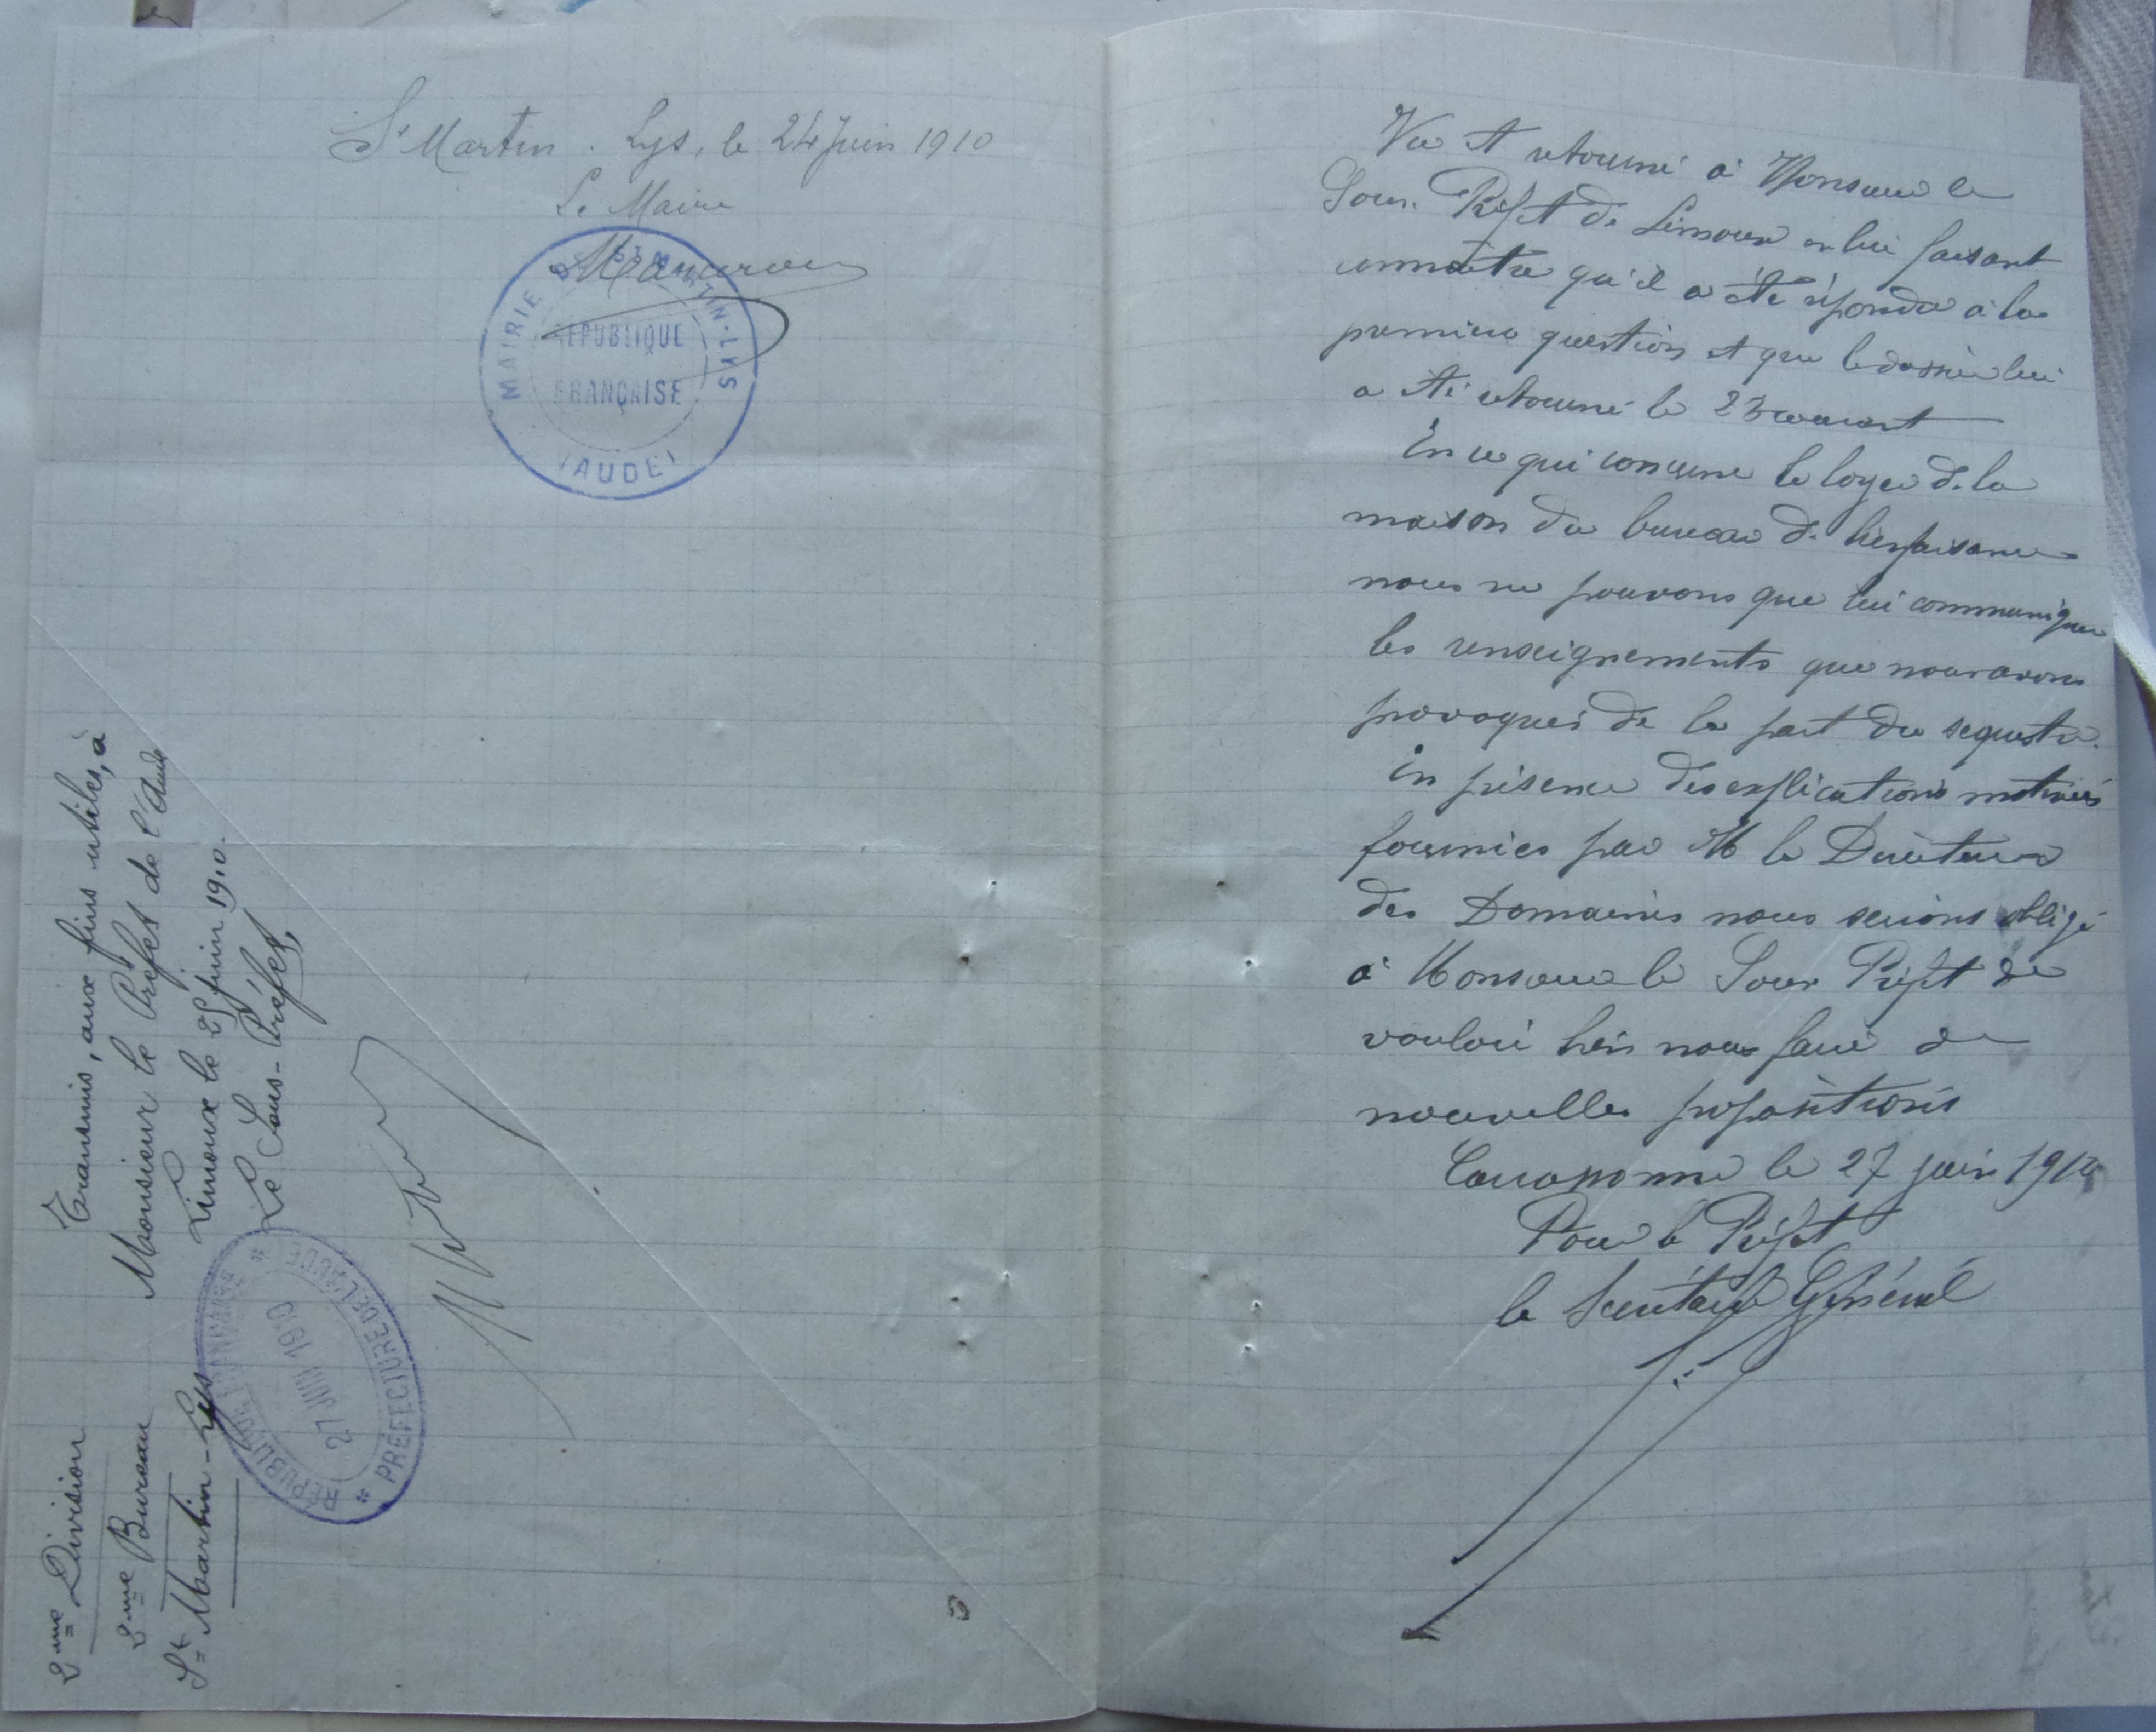 St Martin-Lys, le 24 Juin 1910
Le Maire
MAIRIE DE ST MARTIN-LYS
RÉPUBLIQUE
FRANÇAISE
(AUDE)
Transmis, aux fins utiles, à
Monsieur le Préfet de l'Aude
Limoux le 25 juin 1910.
Le Sous-Préfet,
2me Division
2me Bureau
St Martin-Lys
RÉPUBLIQUE FRANÇAISE
27 JUIN 1910
* PRÉFECTURE DE L'AUDE *
Vu et retourné à Monsieur le
Sous-Préfet de Limoux en lui faisant
connaître qu'il a été répondu à la
première question et que le dossier lui
a été retourné le 23 courant
En ce qui concerne le loyer de la
maison du bureau de bienfaisance
nous ne pouvons que lui communiquer
les renseignements que nous avons
provoqués de la part du sequestre.
En présence des explications motivées
fournies par M le Directeur
des Domaines nous serions obligé
à Monsieur le Sous Préfet de
vouloir bien nous faire de
nouvelles propositions
Carcassonne le 27 juin 1910
Pour le Préfet
le Secrétaire Général